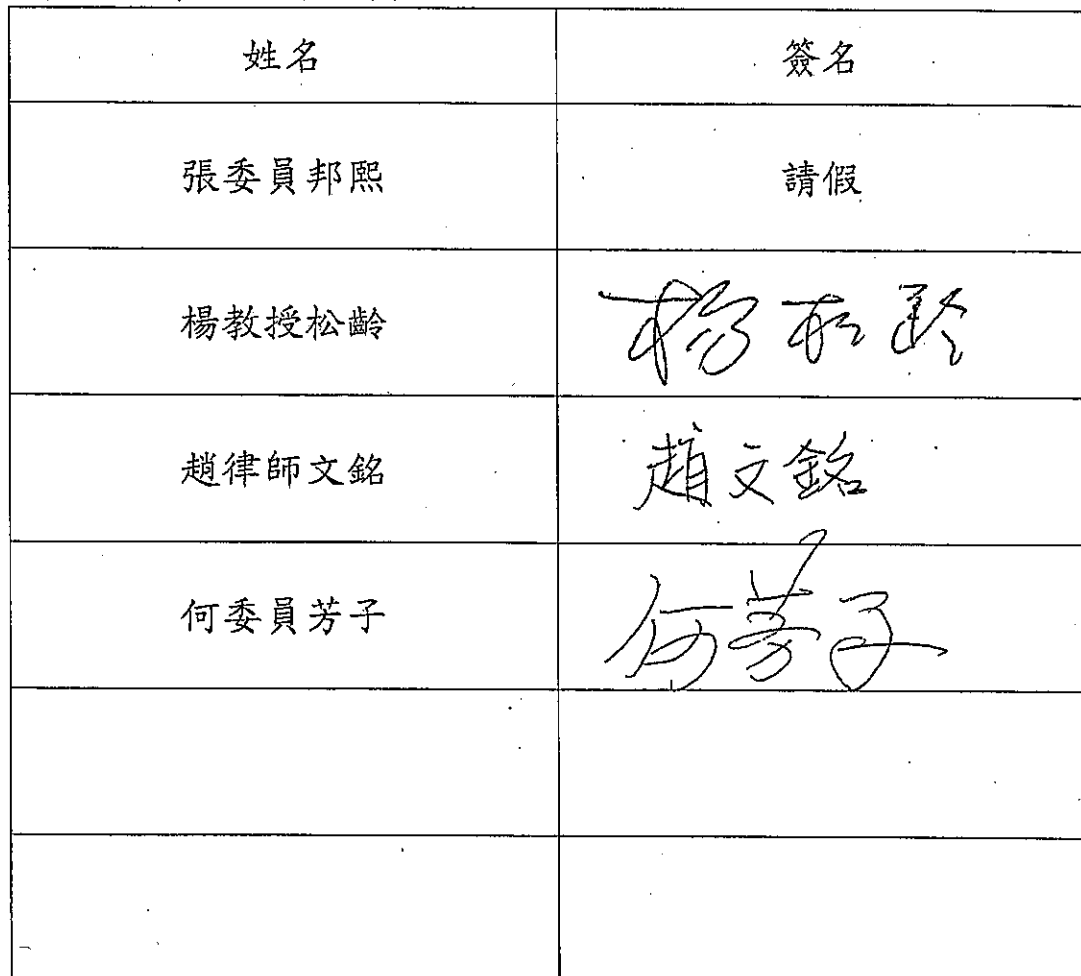 姓名 簽名
張委員邦熙 請假
楊教授松齡 楊松齡
趙律師文銘 趙文銘
何委員芳子 何芳子